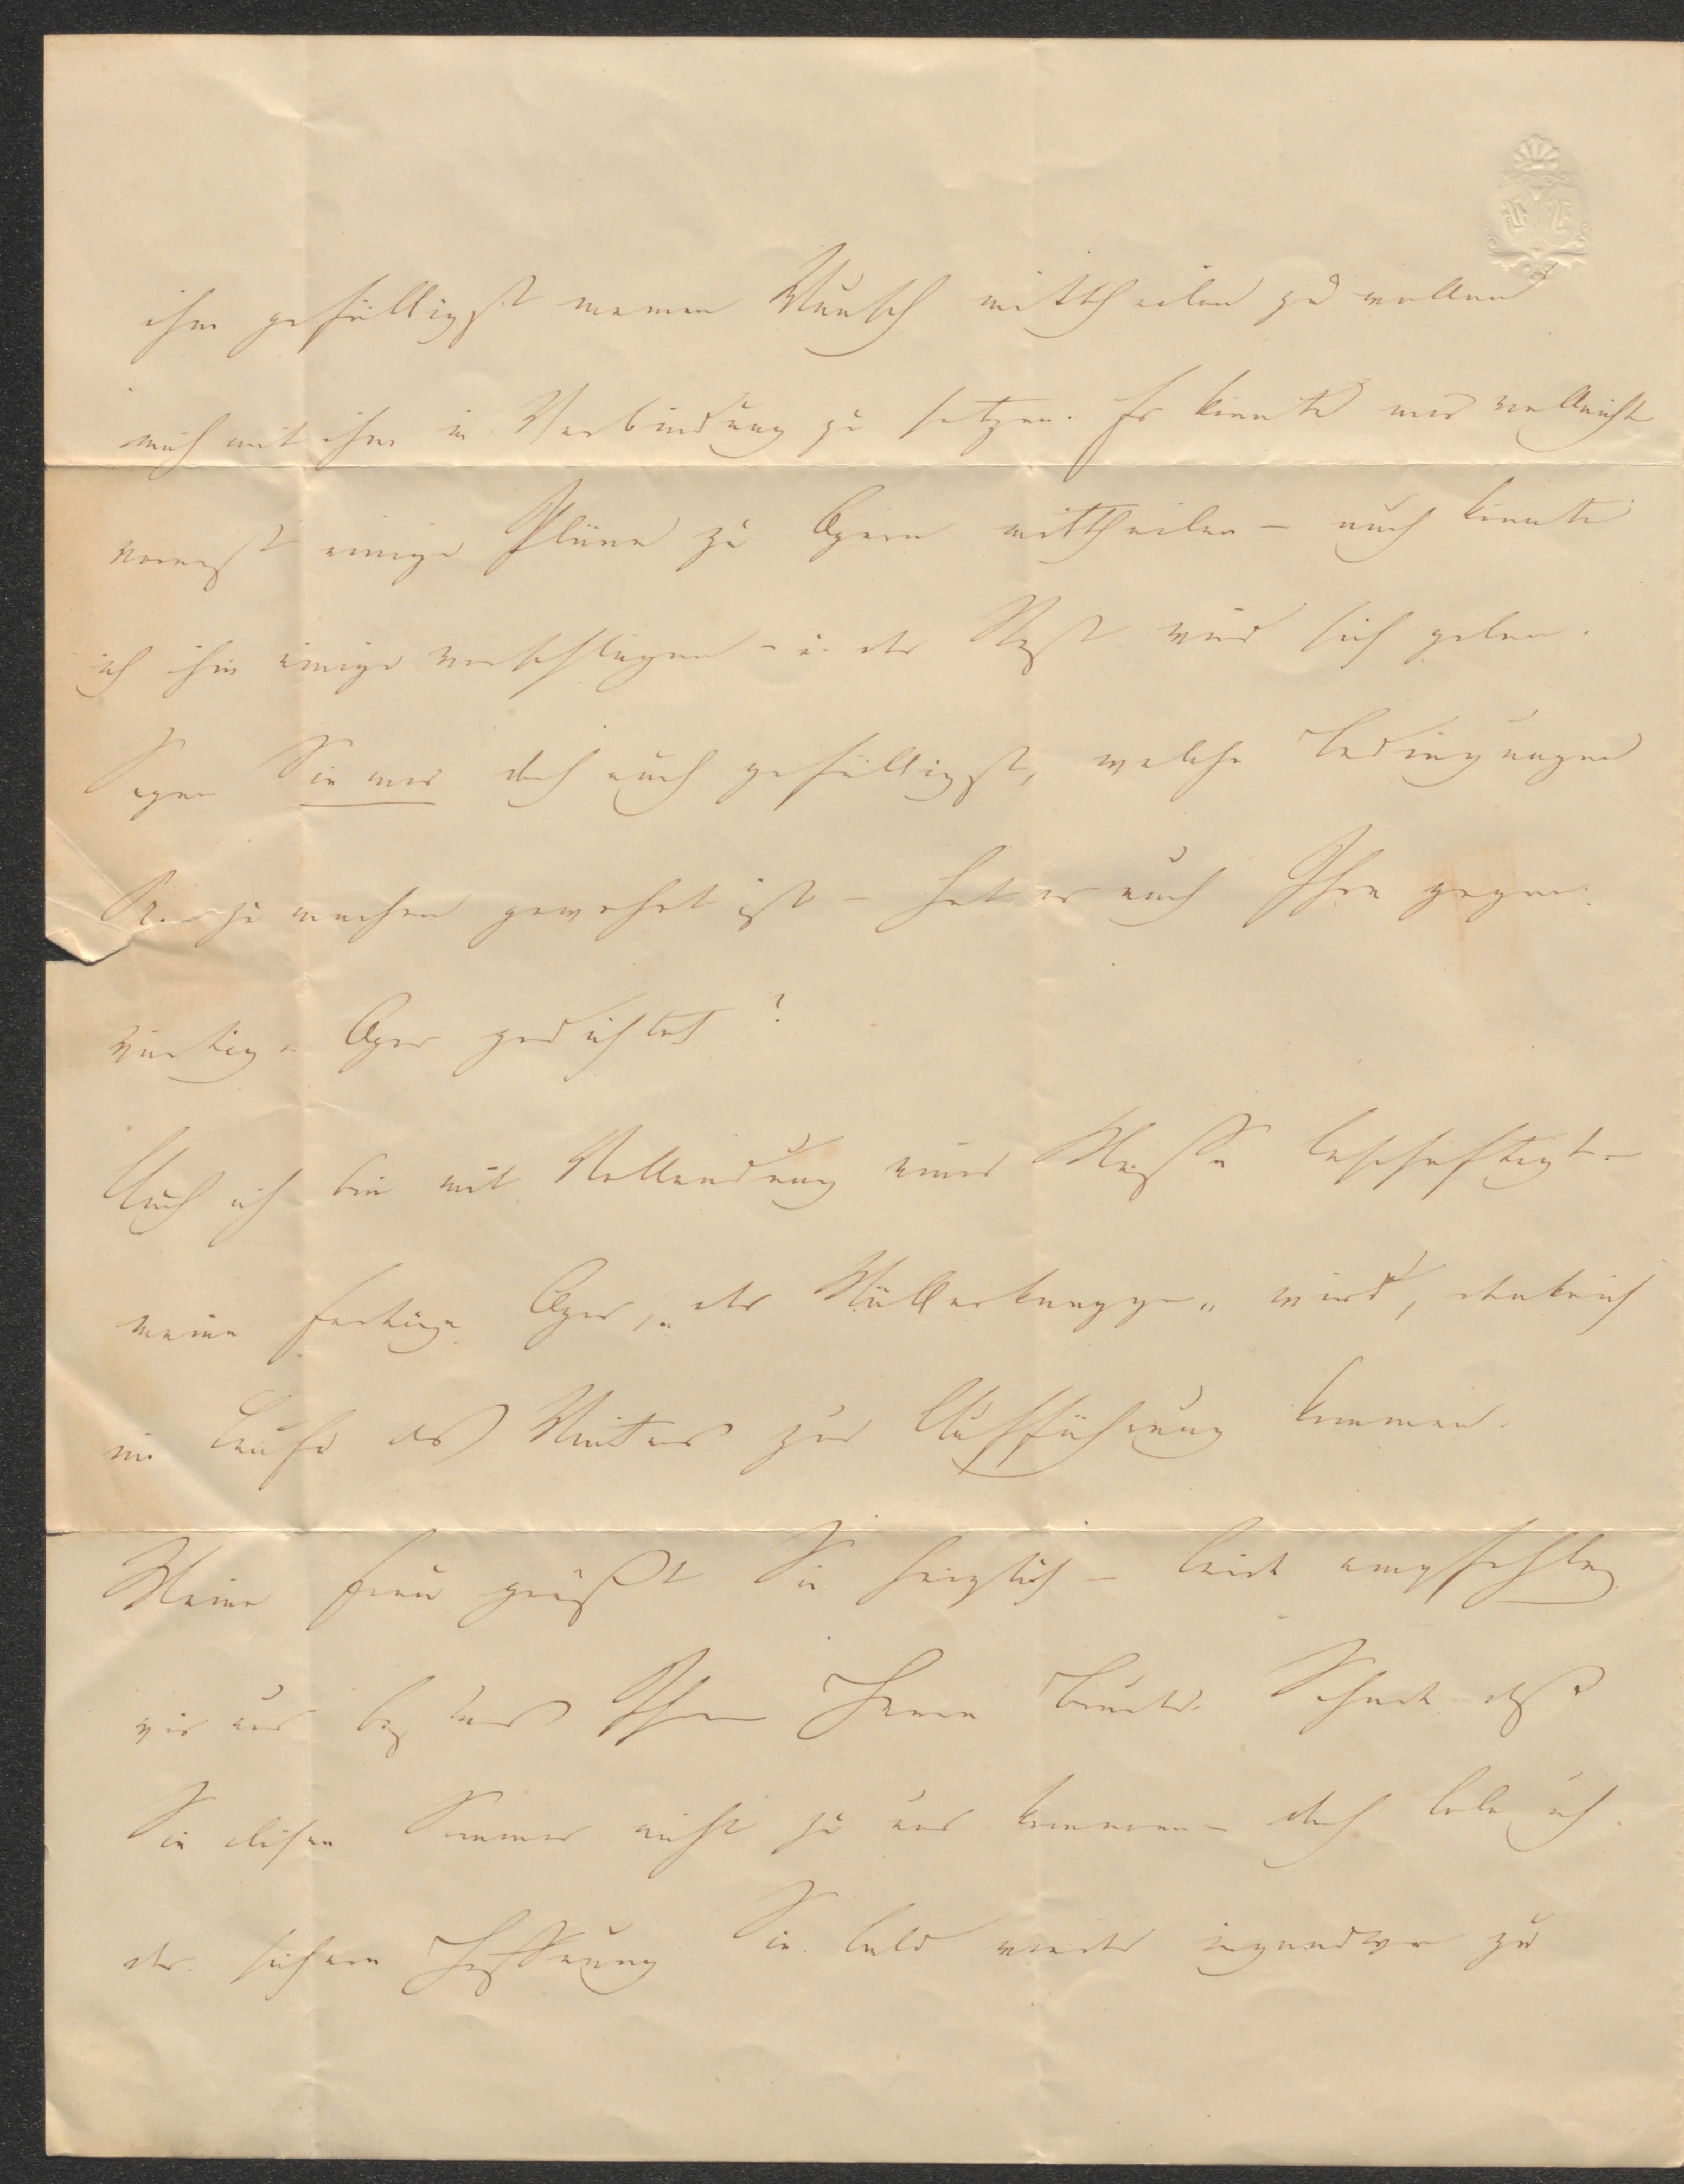 ihm gefälligst meinen Wunsch mittheilen zu wollen
mich mit ihm in Verbindung zu setzen. Er könnte mir vielleicht
vorerst einige Pläne zu Opern mittheilen – auch könnte
ich ihm einige vorschlagen – u. der Rest wird sich geben.
Sagen Sie mir doch auch gefälligst, welche Bedingungen
er zu machen gewohnt ist – hat er auch Ihre gegen-
wärtige Oper gedichtet?
Auch ich bin mit Vollendung einer Messe beschäftigt –
meine fertige Oper, „der Müllerknappe" wird, denke ich
im Laufe des Winters zur Aufführung kommen.
Meine Frau grüßt Sie herzlich – beide empfehlen
wir uns bestens Ihrem Herrn Bruder. Schade daß
Sie diesen Sommer nicht zu uns kommen – doch lebe ich
der sichern Hoffnung Sie bald wieder irgendwo zu